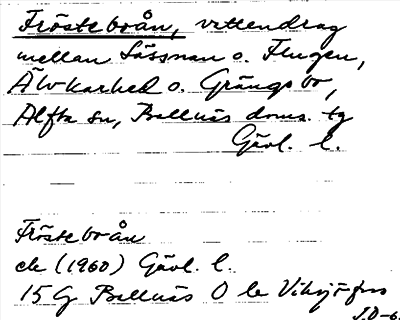 Frösteboån, vattendrag
mellan Lässnan o. Flugen,
Älvkarhed o. Grängsbo,
Alfta sn, Bollnäs doms. tg
Gävl. l.
Frösteboån
ek (1960) Gävl. l.
15 G Bollnäs O le
J.D-6